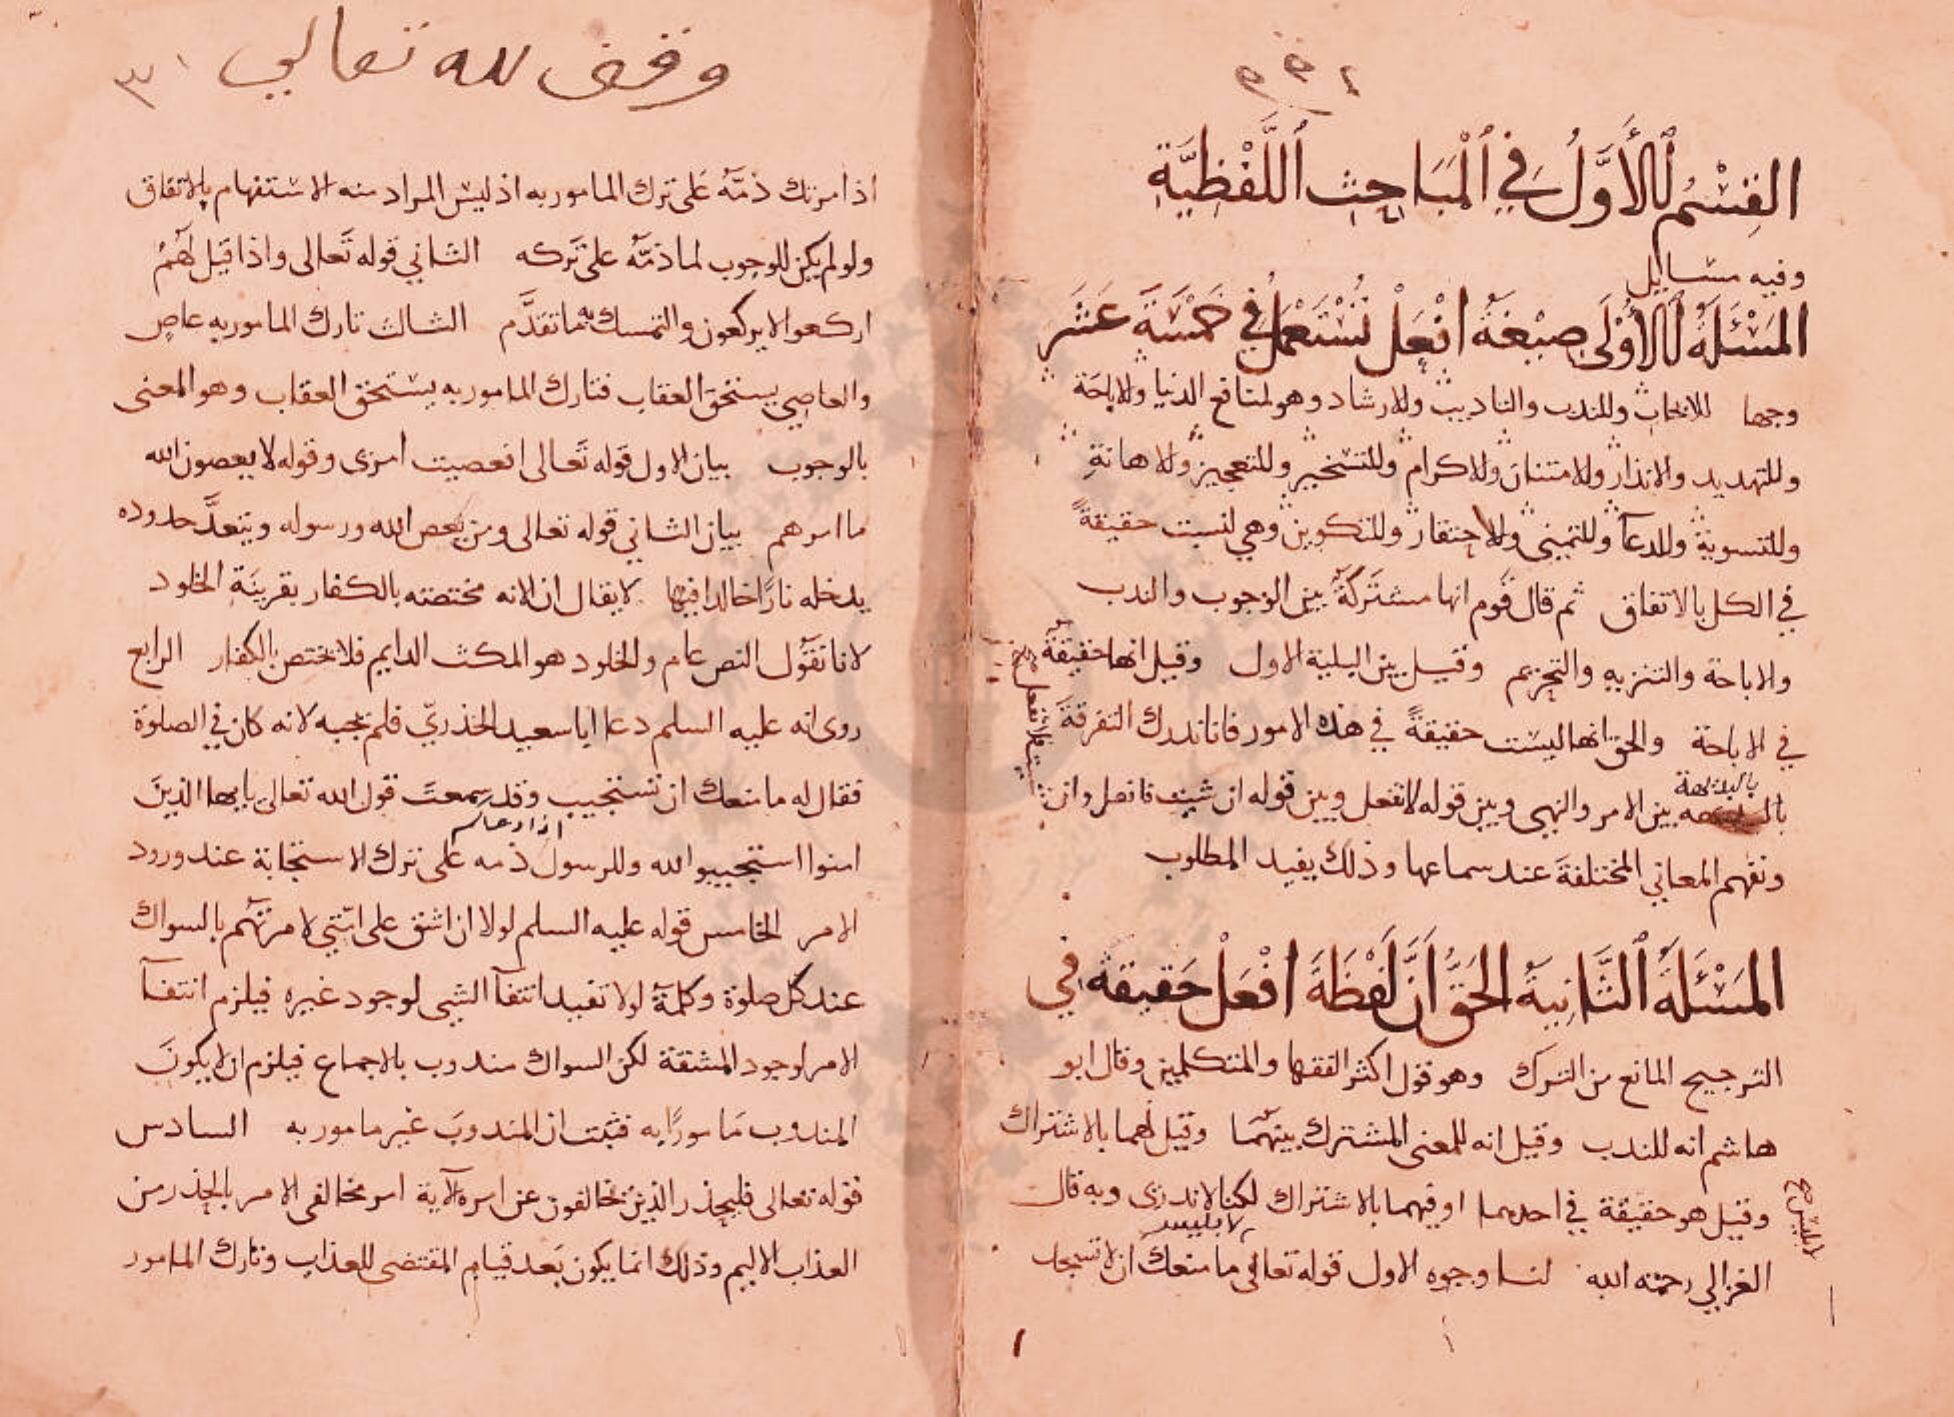 القِسْمُ الأَوَّلُ في الْمَبَاحِثِ اللَّفْظِيَّةِ
وفيه مسايل
المَسْئَلَةُ الأُوْلَى صِيْغَةُ افْعَلْ تُسْتَعْمَلُ في خَمْسَةَ عَشَرَ
وجها للايجاب وللندب والتاديب وللارشاد وهو لمنافع الدنيا وللاباحة
وللتهديد والانذار وللامتنان وللاكرام وللتسخير وللتعجيز وللاهانةِ
وللتسوية وللدعآ وللتمني وللاحتقار وللتكوين وهي ليست حقيقةً
في الكل بالاتفاق ثم قال قوم انها مشتركةٌ بين الوجوب والندب
والاباحة والتنزيه والتحريم وقيل بين الثلثة الاول وقيل انها حقيقة
في الاباحة والحق انها ليست حقيقةً في هذه الامور فانا ندرك التفرقةَ
بالبديهة
بين الامر والنهي وبين قوله لا تفعل وبين قوله ان شيت فافعل وان
شيت فلا تفعل
ونفهم المعاني المختلفةَ عند سماعها وذلك يفيد المطلوب
المَسْئَلَةُ الثَّانِيَةُ الحَقُّ اَنَّ لَفْظَةَ افْعَلْ حَقِيقَة في
الترجيح المانع من الترك وهو قول اكثر الفقها والمتكلمين وقال ابو
هاشم انه للندب وقيل انه للمعنى المشترك بينهما وقيل لهما بالاشتراك
وقيل هو حقيقة في احدهما او فيهما بالاشتراك لكنا لا ندري وبه قال
لابليس
الغزالي رحمه الله لنا وجوه الاول قوله تعالى ما منعك ان لا تسجد
لابليس صح
وقف لله تعالى
اذ امرتك ذمَّهُ عَلى ترك المامور به اذ ليس المراد منه الاستفهام بالاتفاق
ولو لم يكن للوجوب لما ذمَّهُ على تركه الثاني قوله تَعالى واذا قيل لهُمُ
اركعوا لا يركعون والتمسك به ما تقدَّم الثالث تارك المامور به عاصٍ
والعاصي يستحق العقاب فتارك المامور به يستحق العقاب وهو المعنى
بالوجوب بيان الاول قوله تَعالى افعصيت امري وقوله لا يعصون الله
ما امرهم بيان الثاني قوله تعالى ومن يَعص الله ورسوله ويتعدَّ حدوده
يدخله نارًا خالدا فيها لا يقال ان الانه مختصته بالكفار بقرينَةِ الخلود
لانا نقول النص عام والخلود هو المكث الدايم فلا يختص بالكفار الرابع
روى انه عليه السلم دعا ابا سعيد الخذريّ فلم يجبه لانه كان في الصلوة
فقال له ما منعك ان تستجيب وقد سمعتَ قول الله تعالى يايها الذينَ
اذا دعاكم
امنوا استجيبوا لله وللرسول ذمه على ترك الاستجابة عند ورود
الامر الخامس قوله عليه السلم لولا ان اشق على امّتي لامرتهم بالسواك
عند كل صلوة وكلمة لولا تفيد انتفآ الشي لوجود غيره فيلزم انتفآ
الامر لوجود المشقة لكن السواك مندوب بالاجماع فيلزم ان لا يكونَ
المندوب مَامورًا به فثبت ان المندوبَ غير مامور به السادس
قوله تعالى فليحذر الذين يخالفون عن امره الآية امر مخالفي الامر بالحذر من
العذاب الاليم وذلك انما يكون بَعد قيام المقتضى للعذاب وتارك المامور